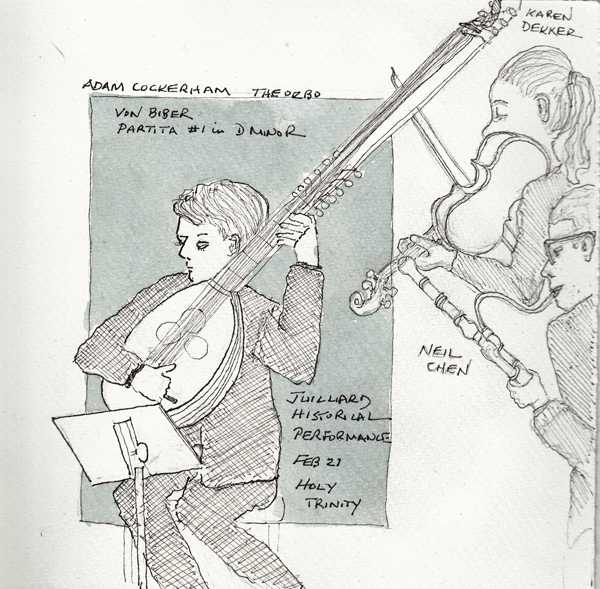 ADAM COCKERHAM THEORBO
VON BIBER
PARTITA #1 in D MINOR
KAREN
DEKKER
NEIL
CHEN
JUILLIARD
HISTORICAL
PERFORMANCE
FEB 21
HOLY
TRINITY